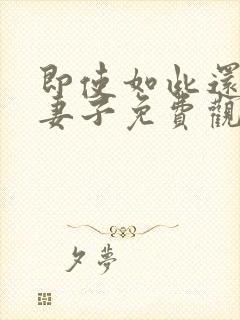 即使如此還
妻子免費觀
夕夢